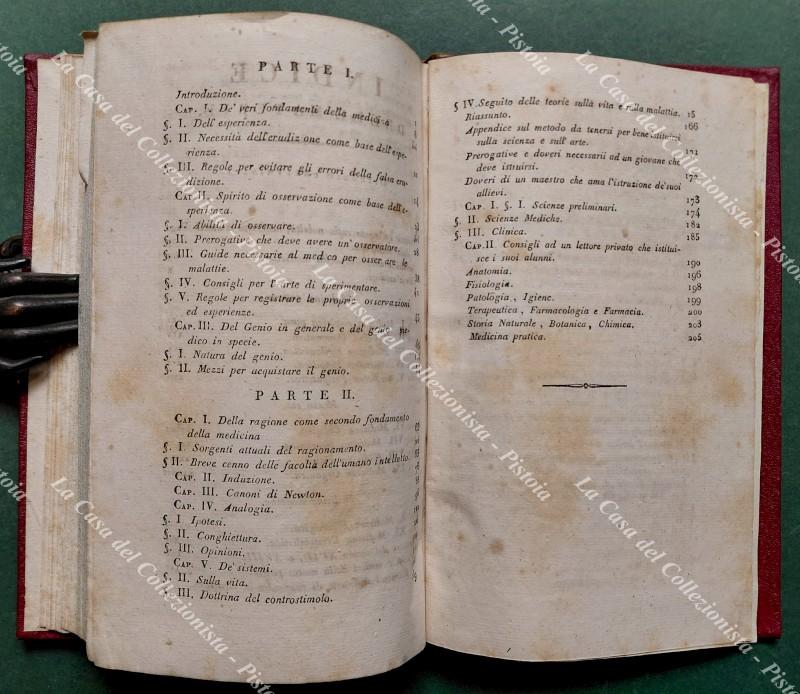 PARTE I.
Introduzione.
CAP. I. De' veri fondamenti della medicina
§. I. Dell'esperienza.
§. II. Necessità dell'erudizione come base dell'espe-
rienza.
§. III. Regole per evitare gli errori della falsa eru-
dizione.
CAP II. Spirito di osservazione come base dell'e-
sperienza.
§. I. Abilità di osservare.
§. II. Prerogative che deve avere un'osservatore.
§. III. Guide necessarie al medico per osservare le
malattie.
§. IV. Consigli per l'arte di sperimentare.
§. V. Regole per registrare le proprie osservazioni
ed esperienze.
CAP. III. Del Genio in generale e del genio me-
dico in specie.
§. I. Natura del genio.
§. II. Mezzi per acquistare il genio.
PARTE II.
CAP. I. Della ragione come secondo fondamento
della medicina
§. I. Sorgenti attuali del ragionamento.
§ II. Breve cenno delle facoltà dell'umano intelletto.
CAP. II. Induzione.
CAP. III. Canoni di Newton.
CAP. IV. Analogia.
§. I. Ipotesi.
§. II. Conghiettura.
§. III. Opinioni.
CAP. V. De' sistemi.
§. II. Sulla vita.
§. III. Dottrina del controstimolo.
§ IV. Seguito delle teorie sulla vita e sulla malattia. 15
Riassunto. 166
Appendice sul metodo da tenersi per bene istituirsi
sulla scienza e sull'arte. 171
Prerogative e doveri necessarii ad un giovane che
deve istruirsi. 172
Doveri di un maestro che ama l'istruzione de' suoi
allievi. 173
CAP. I. §. I. Scienze preliminari. 174
§. II. Scienze Mediche. 182
§. III. Clinica. 185
CAP. II Consigli ad un lettore privato che istitui-
sce i suoi alunni. 190
Anatomia. 196
Fisiologia. 198
Patologia, Igiene. 199
Terapeutica, Farmacologia e Farmacia. 200
Storia Naturale, Botanica, Chimica. 203
Medicina pratica. 205
La Casa del Collezionista - Pistoia